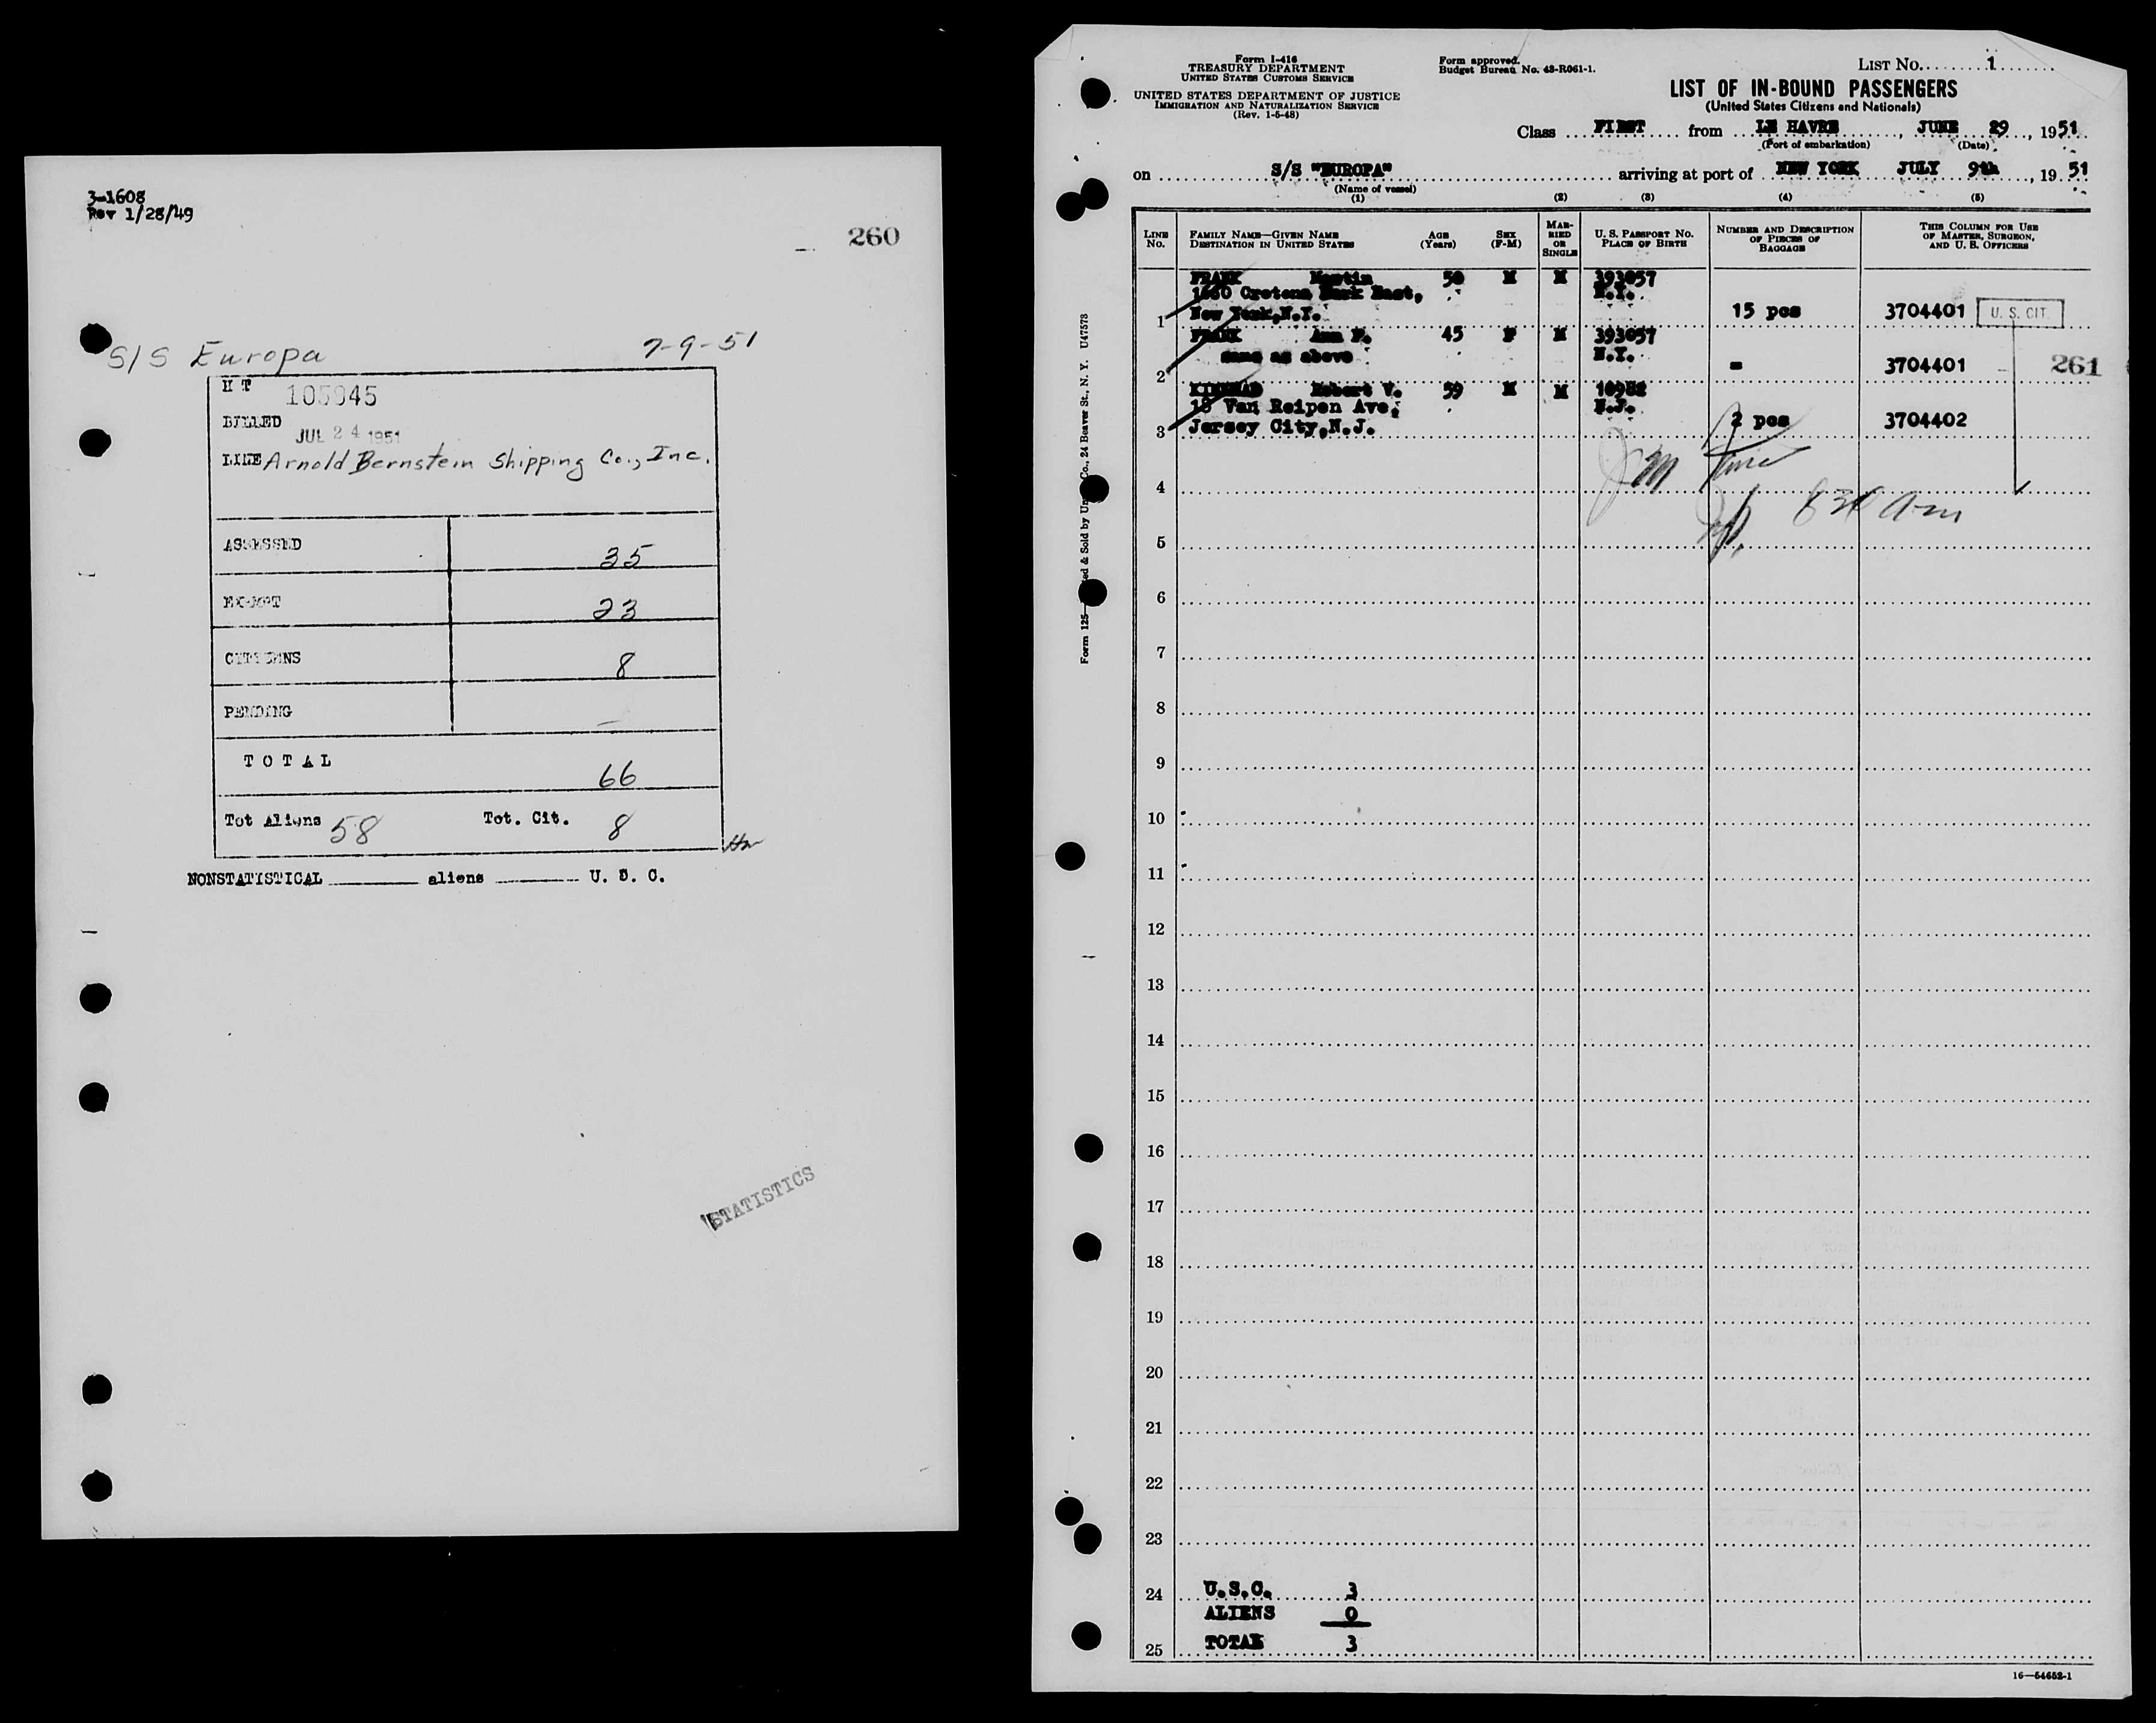 3-1608
Rev 1/28/49
260
S/S Europa 7-9-51
H T 105945
BILLED JUL 24 1951
LINE Arnold Bernstein Shipping Co., Inc.
ASSESSED 35
EXEMPT 23
CITIZENS 8
PENDING —
TOTAL 66
Tot Aliens 58 Tot. Cit. 8
NONSTATISTICAL aliens U. S. C.
STATISTICS
Form I-416
TREASURY DEPARTMENT
UNITED STATES CUSTOMS SERVICE
UNITED STATES DEPARTMENT OF JUSTICE
IMMIGRATION AND NATURALIZATION SERVICE
(Rev. 1-5-48)
Form approved.
Budget Bureau No. 43-R061-1.
LIST No. 1
LIST OF IN-BOUND PASSENGERS
(United States Citizens and Nationals)
Class FIRST from LE HAVRE, JUNE 29, 1951
(Port of embarkation) (Date)
on S/S "EUROPA" arriving at port of NEW YORK JULY 9th, 1951
(Name of vessel)
(1) (2) (3) (4) (5)
LINE No.
FAMILY NAME—GIVEN NAME
DESTINATION IN UNITED STATES
AGE (Years)
SEX (F-M)
MARRIED OR SINGLE
U. S. PASSPORT No.
PLACE OF BIRTH
NUMBER AND DESCRIPTION OF PIECES OF BAGGAGE
THIS COLUMN FOR USE OF MASTER, SURGEON, AND U. S. OFFICERS
FRANK Martin 50 M M 393057
Crotona Park East, N.Y.
1 New York, N.Y. 15 pcs 3704401 U. S. CIT.
FRANK Ann P. 45 F M 393057
same as above N.Y.
2 - 3704401
261
Robert V. 59 M M
Van Reipen Ave, N.J.
3 Jersey City, N.J. 2 pcs 3704402
4
830 am
5
6
7
8
9
10
11
12
13
14
15
16
17
18
19
20
21
22
23
24 U.S.C. 3
ALIENS 0
25 TOTAL 3
16—54652-1
Form 125
ed & Sold by
Co., 24 Beaver St., N. Y. U47573